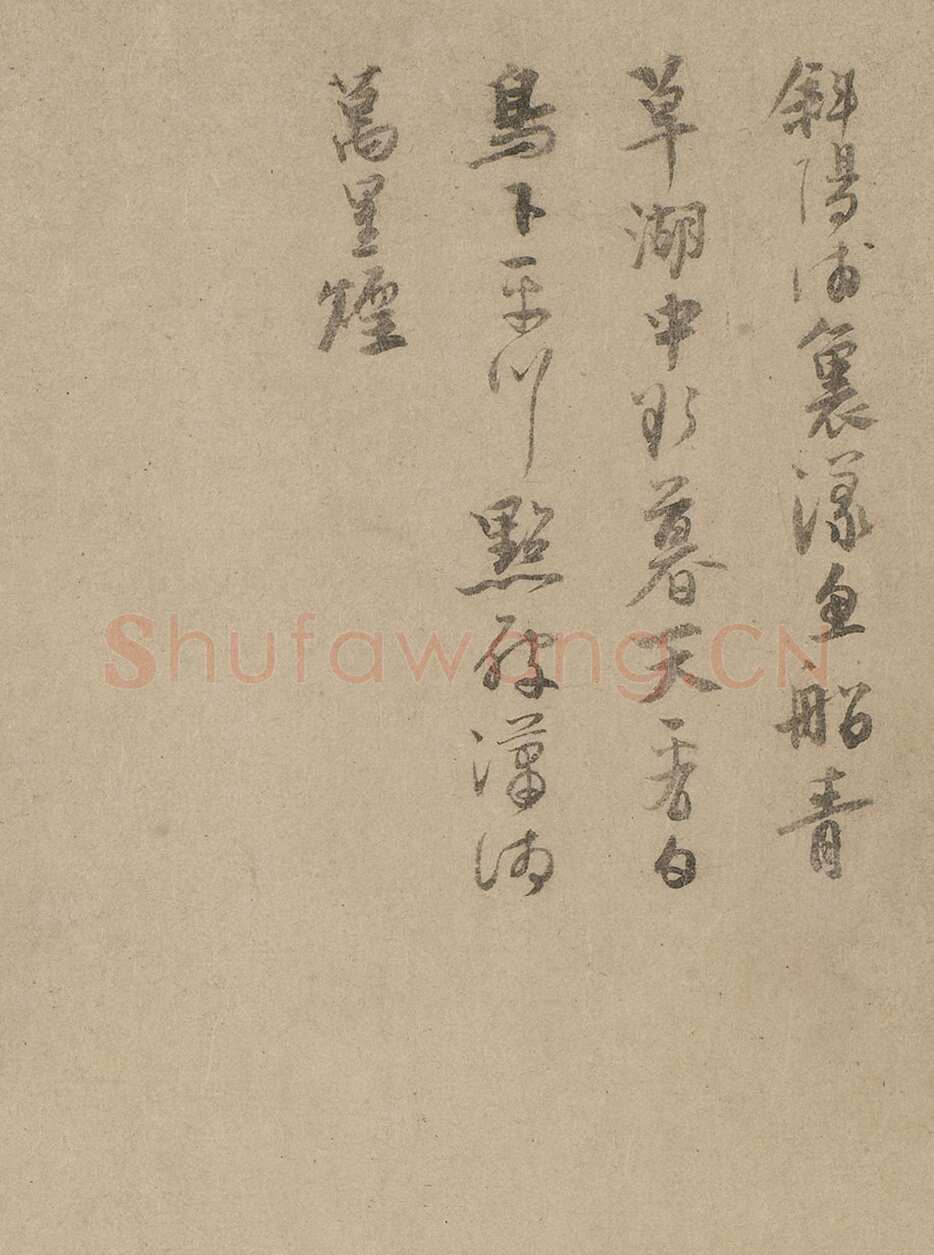 斜陽浦裏漾魚船青
草湖中欲暮天看白
鳥下平川點破瀟湘
萬里煙
Shufawang.CN